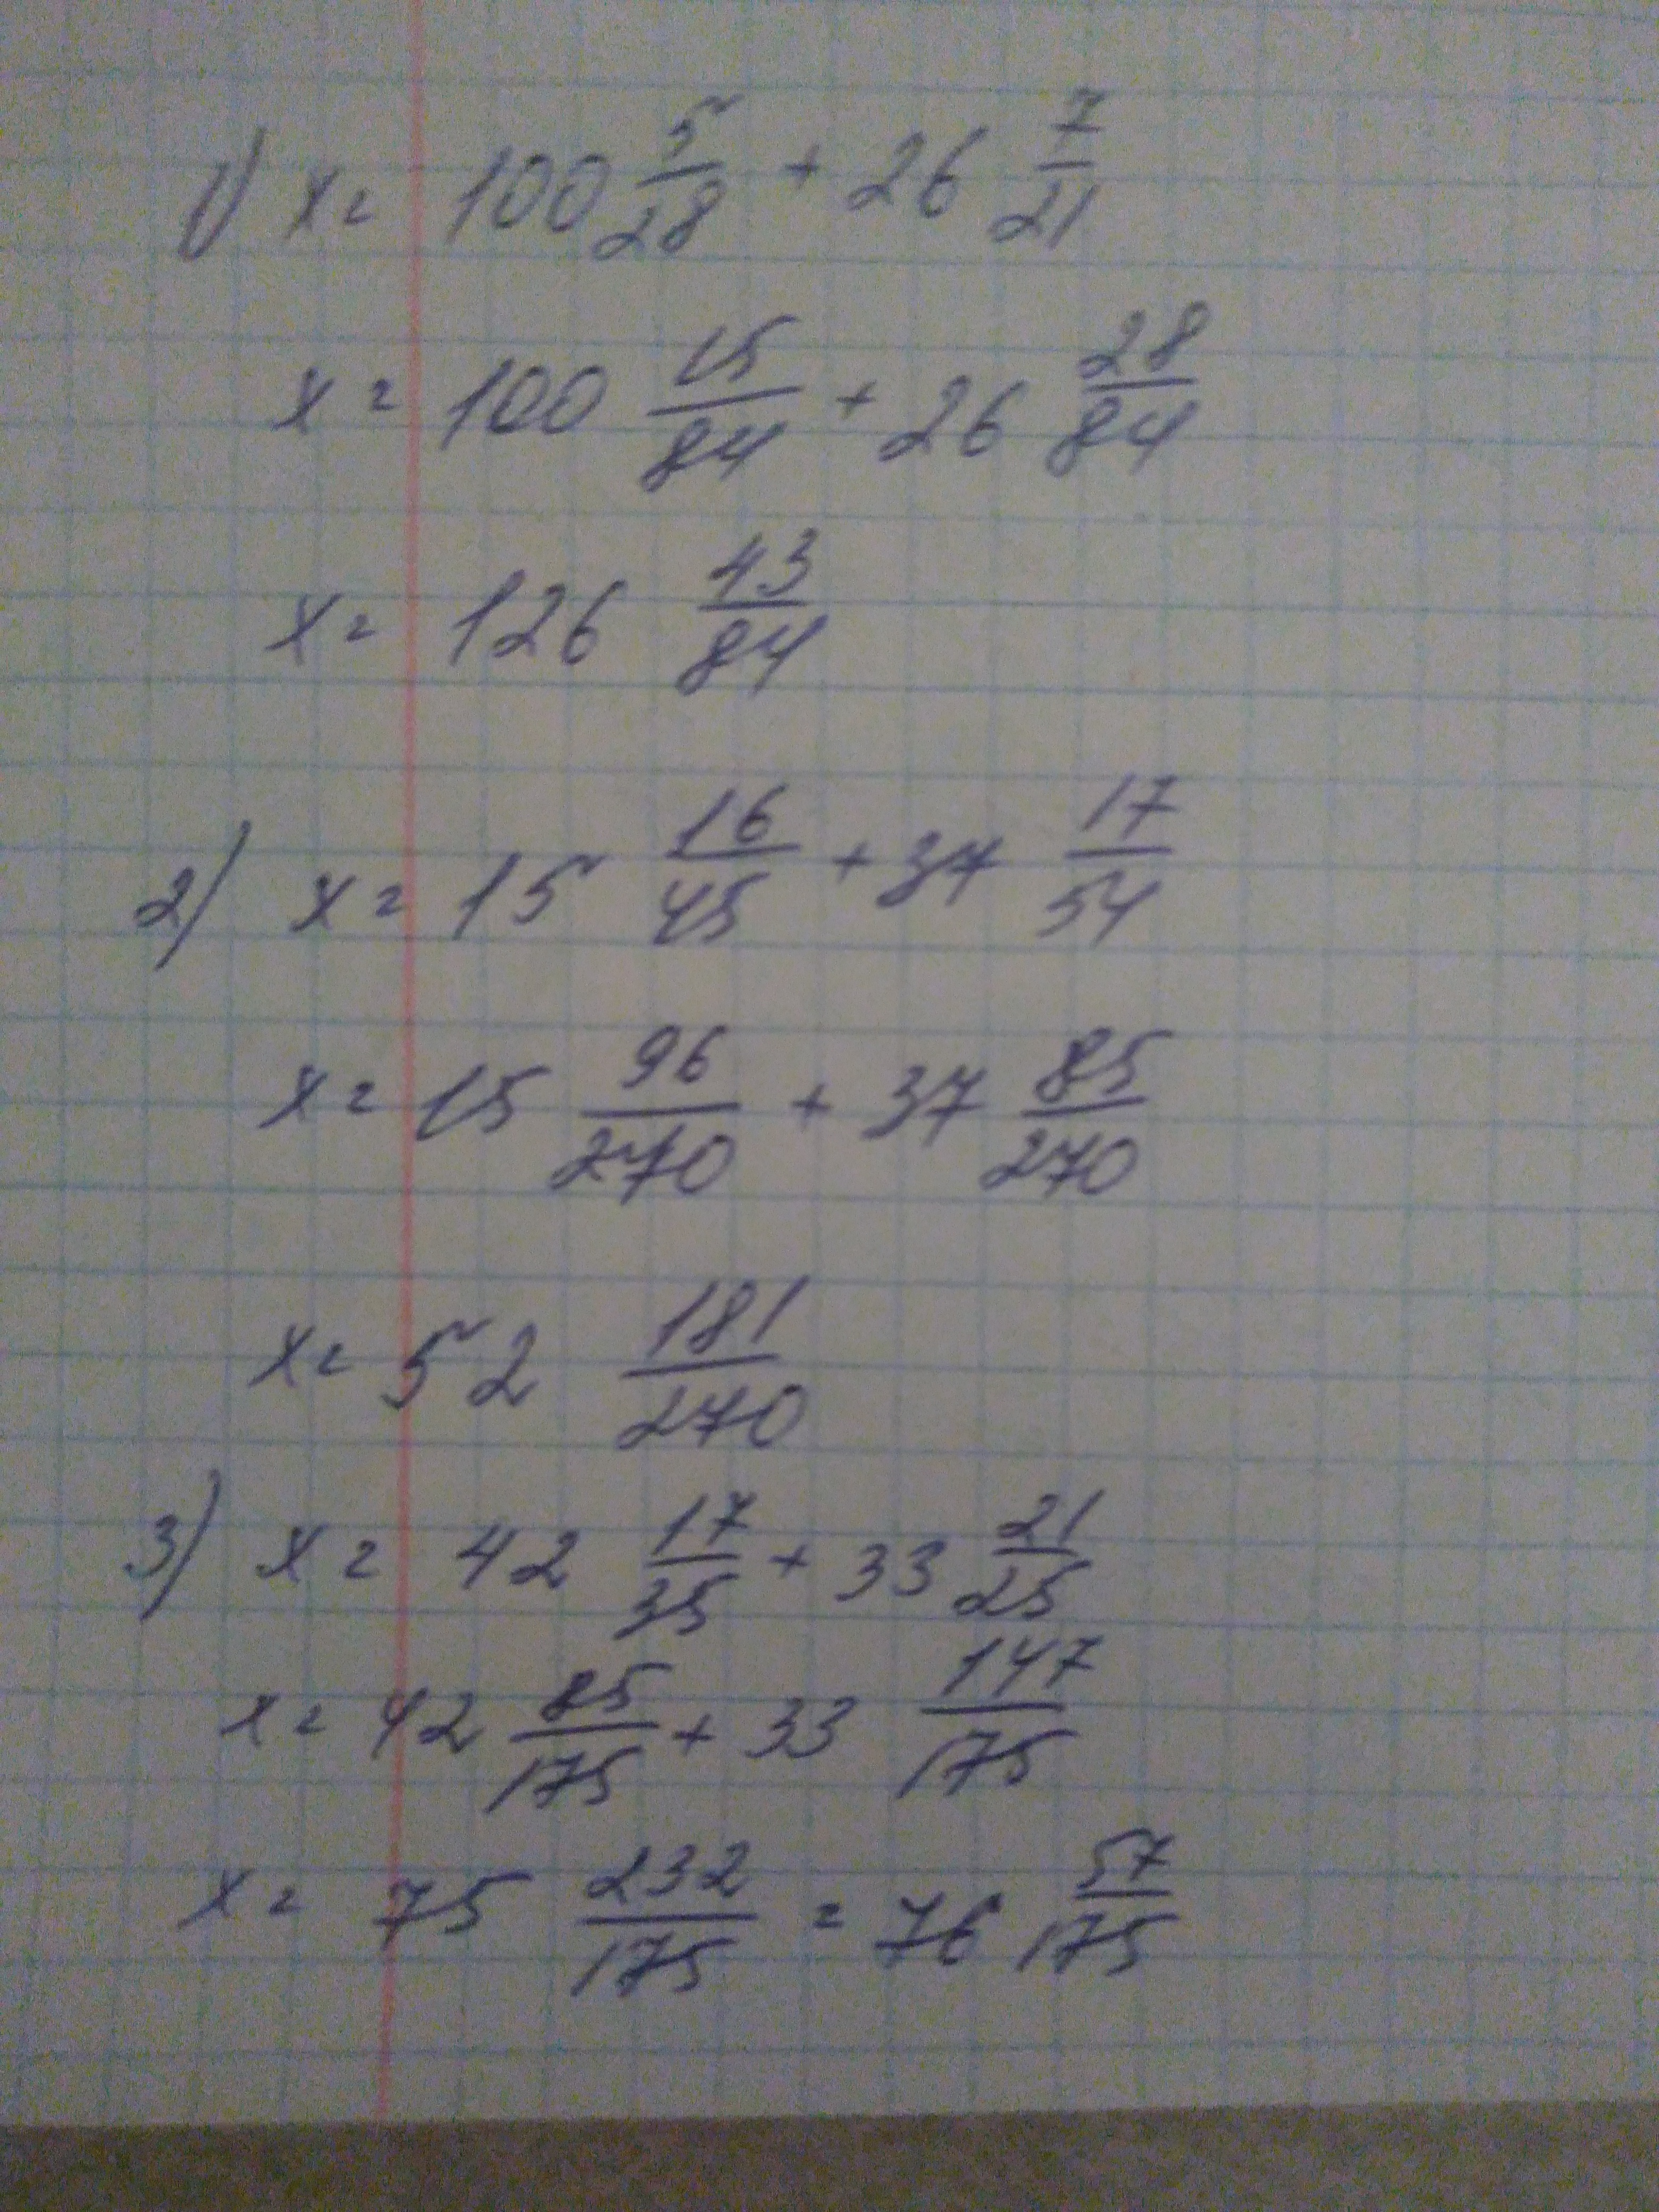 1) x = 100 5/28 + 26 7/21
x = 100 15/84 + 26 28/84
x = 126 43/84
2) x = 15 16/45 + 37 17/54
x = 15 96/270 + 37 85/270
x = 52 181/270
3) x = 42 17/35 + 33 21/25
x = 42 85/175 + 33 147/175
x = 75 232/175 = 76 57/175